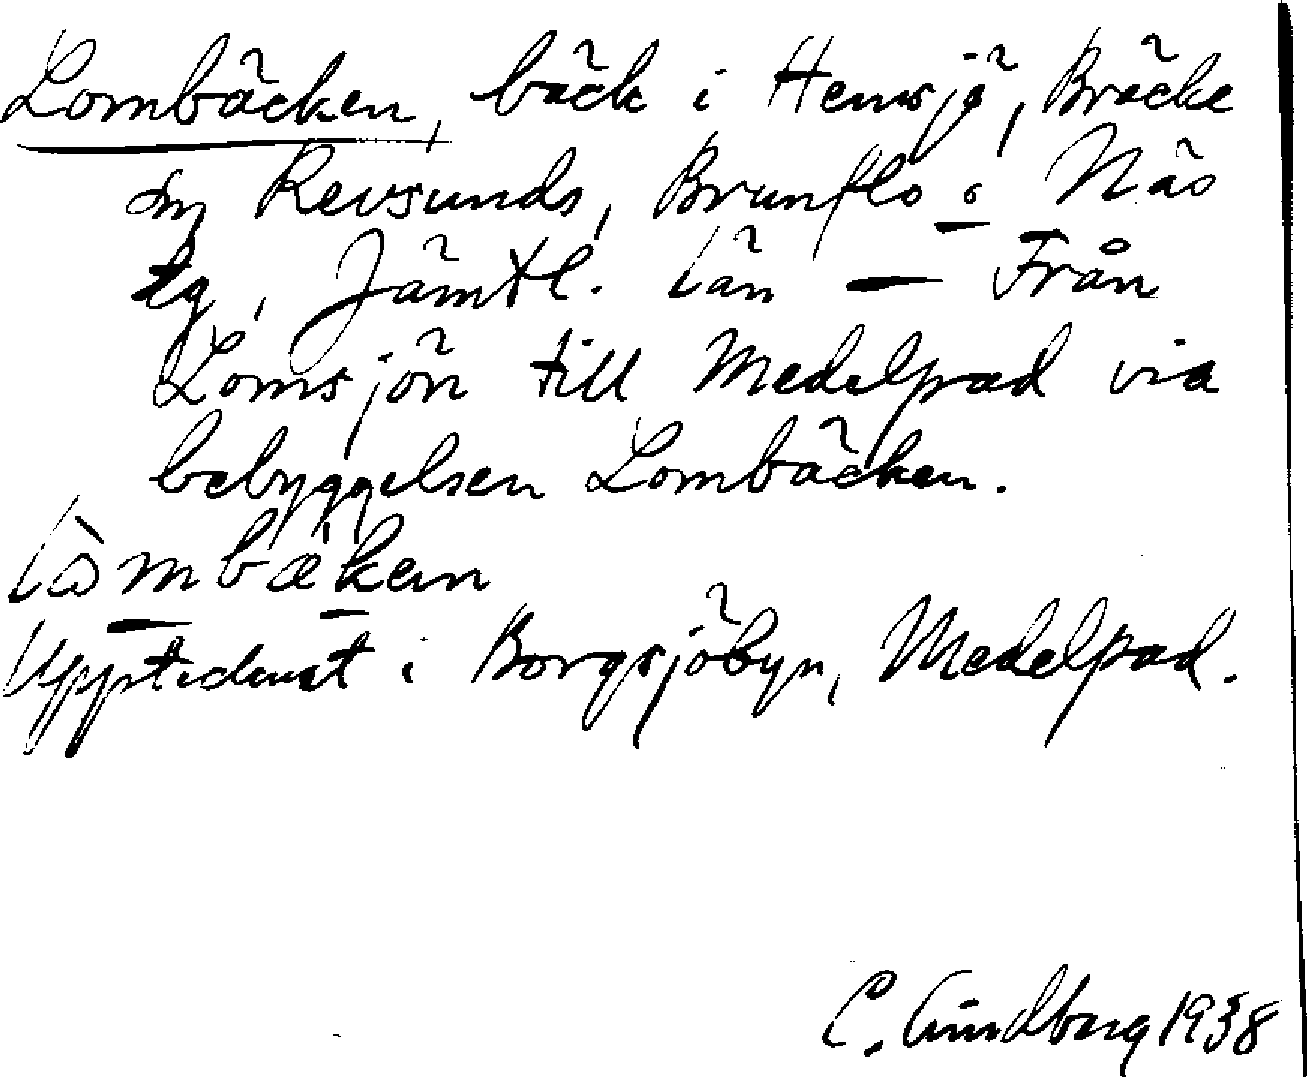 Lombäcken, bäck i Hemsjö, Bräcke
sn, Revsunds, Brunflo o Näs
tg, Jämtl. län — Från
Lomsjön till Medelpad via
bebyggelsen Lombäcken.
lòmbæken
Upptecknat i Borgsjöbyn, Medelpad.
C. Lindberg 1938